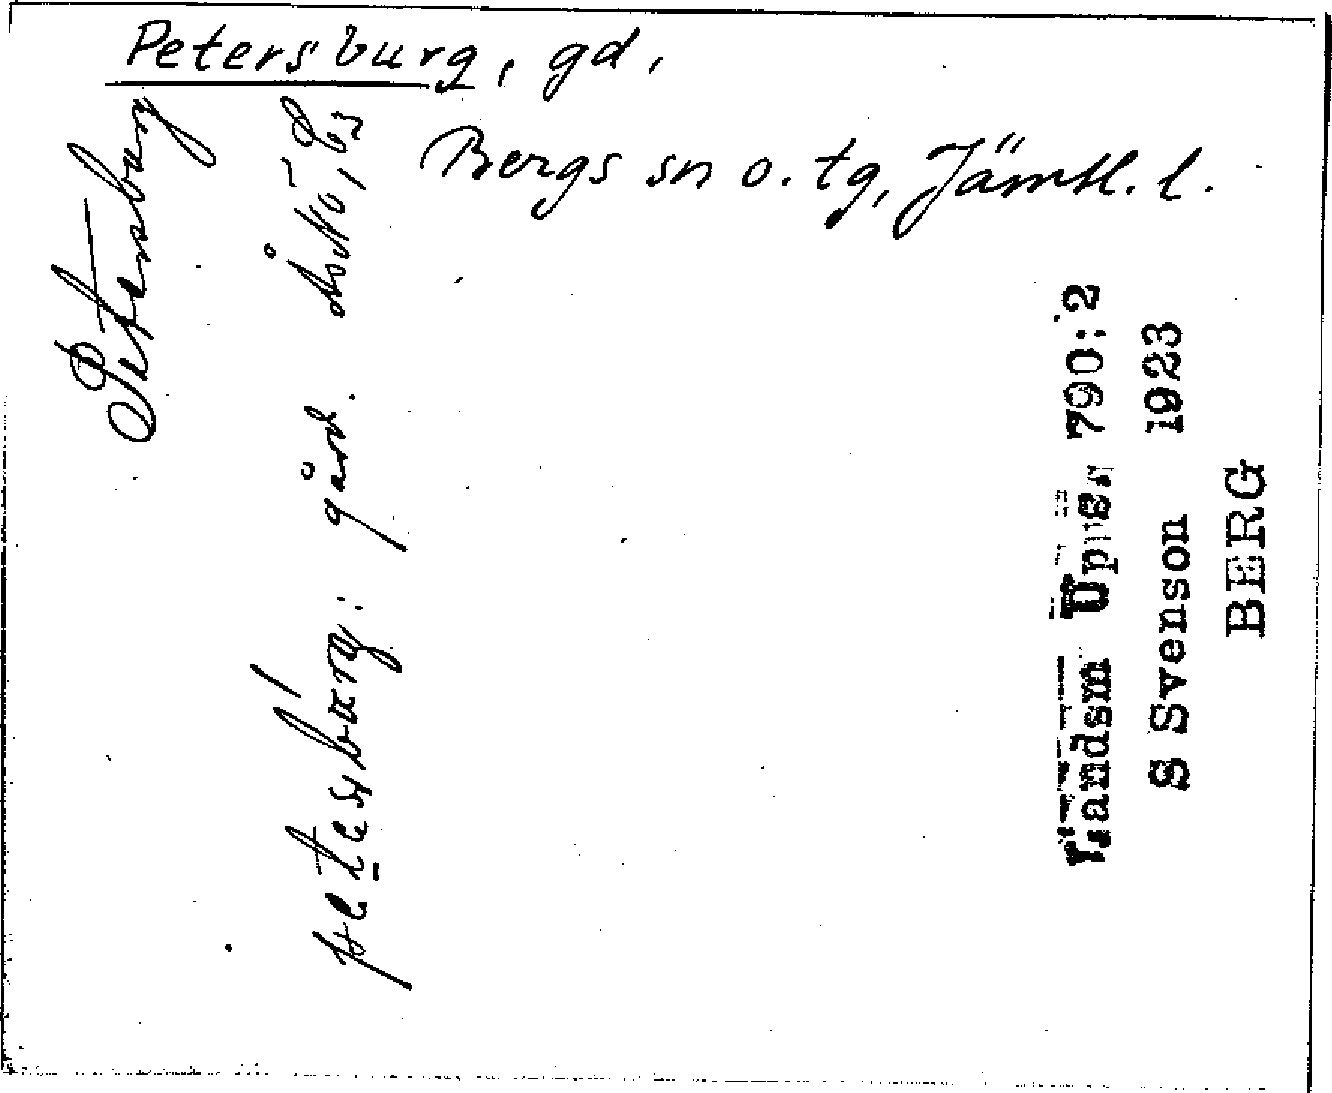 Petersburg, gd,
Bergs sn o. tg, Jämtl. l.
Petersburg
petesburg: gård.
Landsm Upps. 790:2
S Svenson 1923
BERG